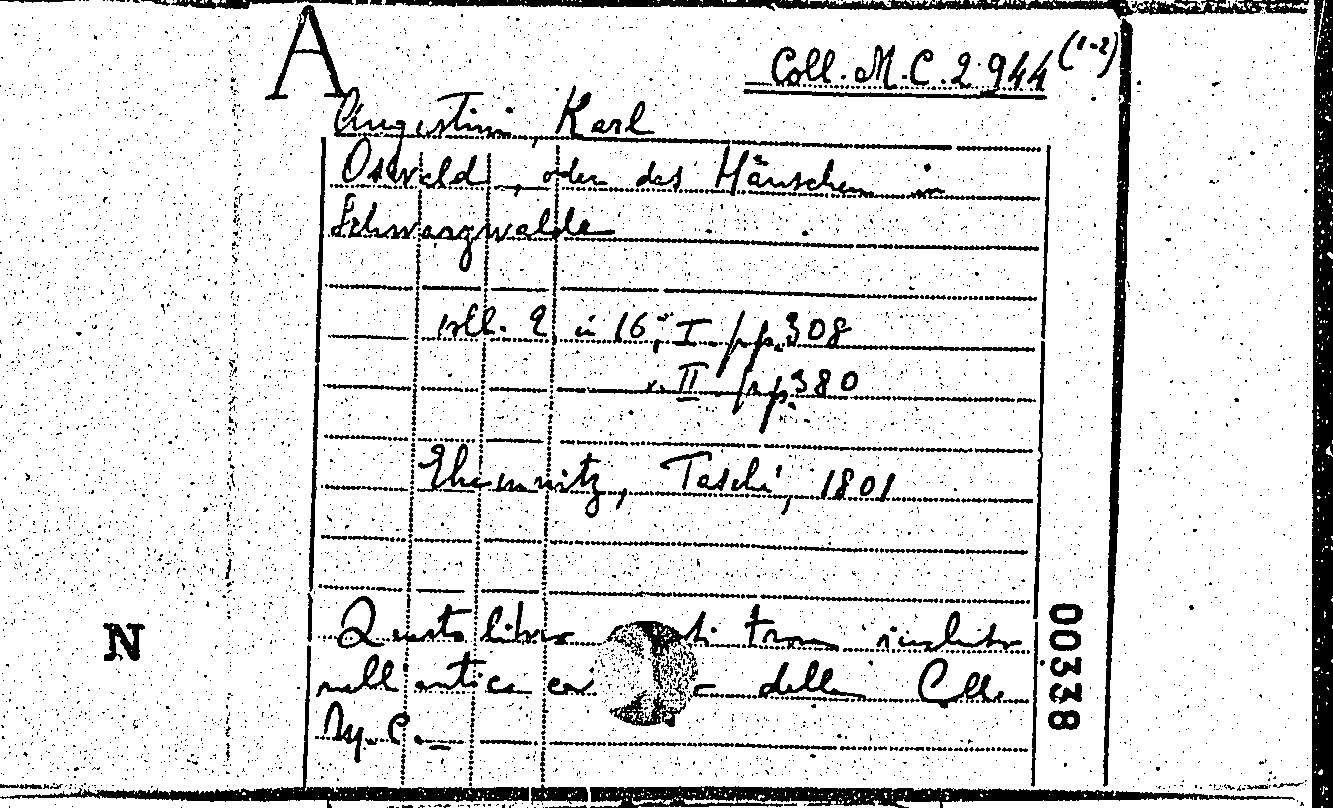 A
Coll. M. C. 2944 (1-2)
Augustini, Karl
Oswald, oder das Häuschen im
Schwarzwalde
voll. 2 in 16°; I. pp. 308
II pp. 380
Chemnitz, Tasché, 1801
Questo libro si trova
nell'antica della Coll.
M. C.
N
00338